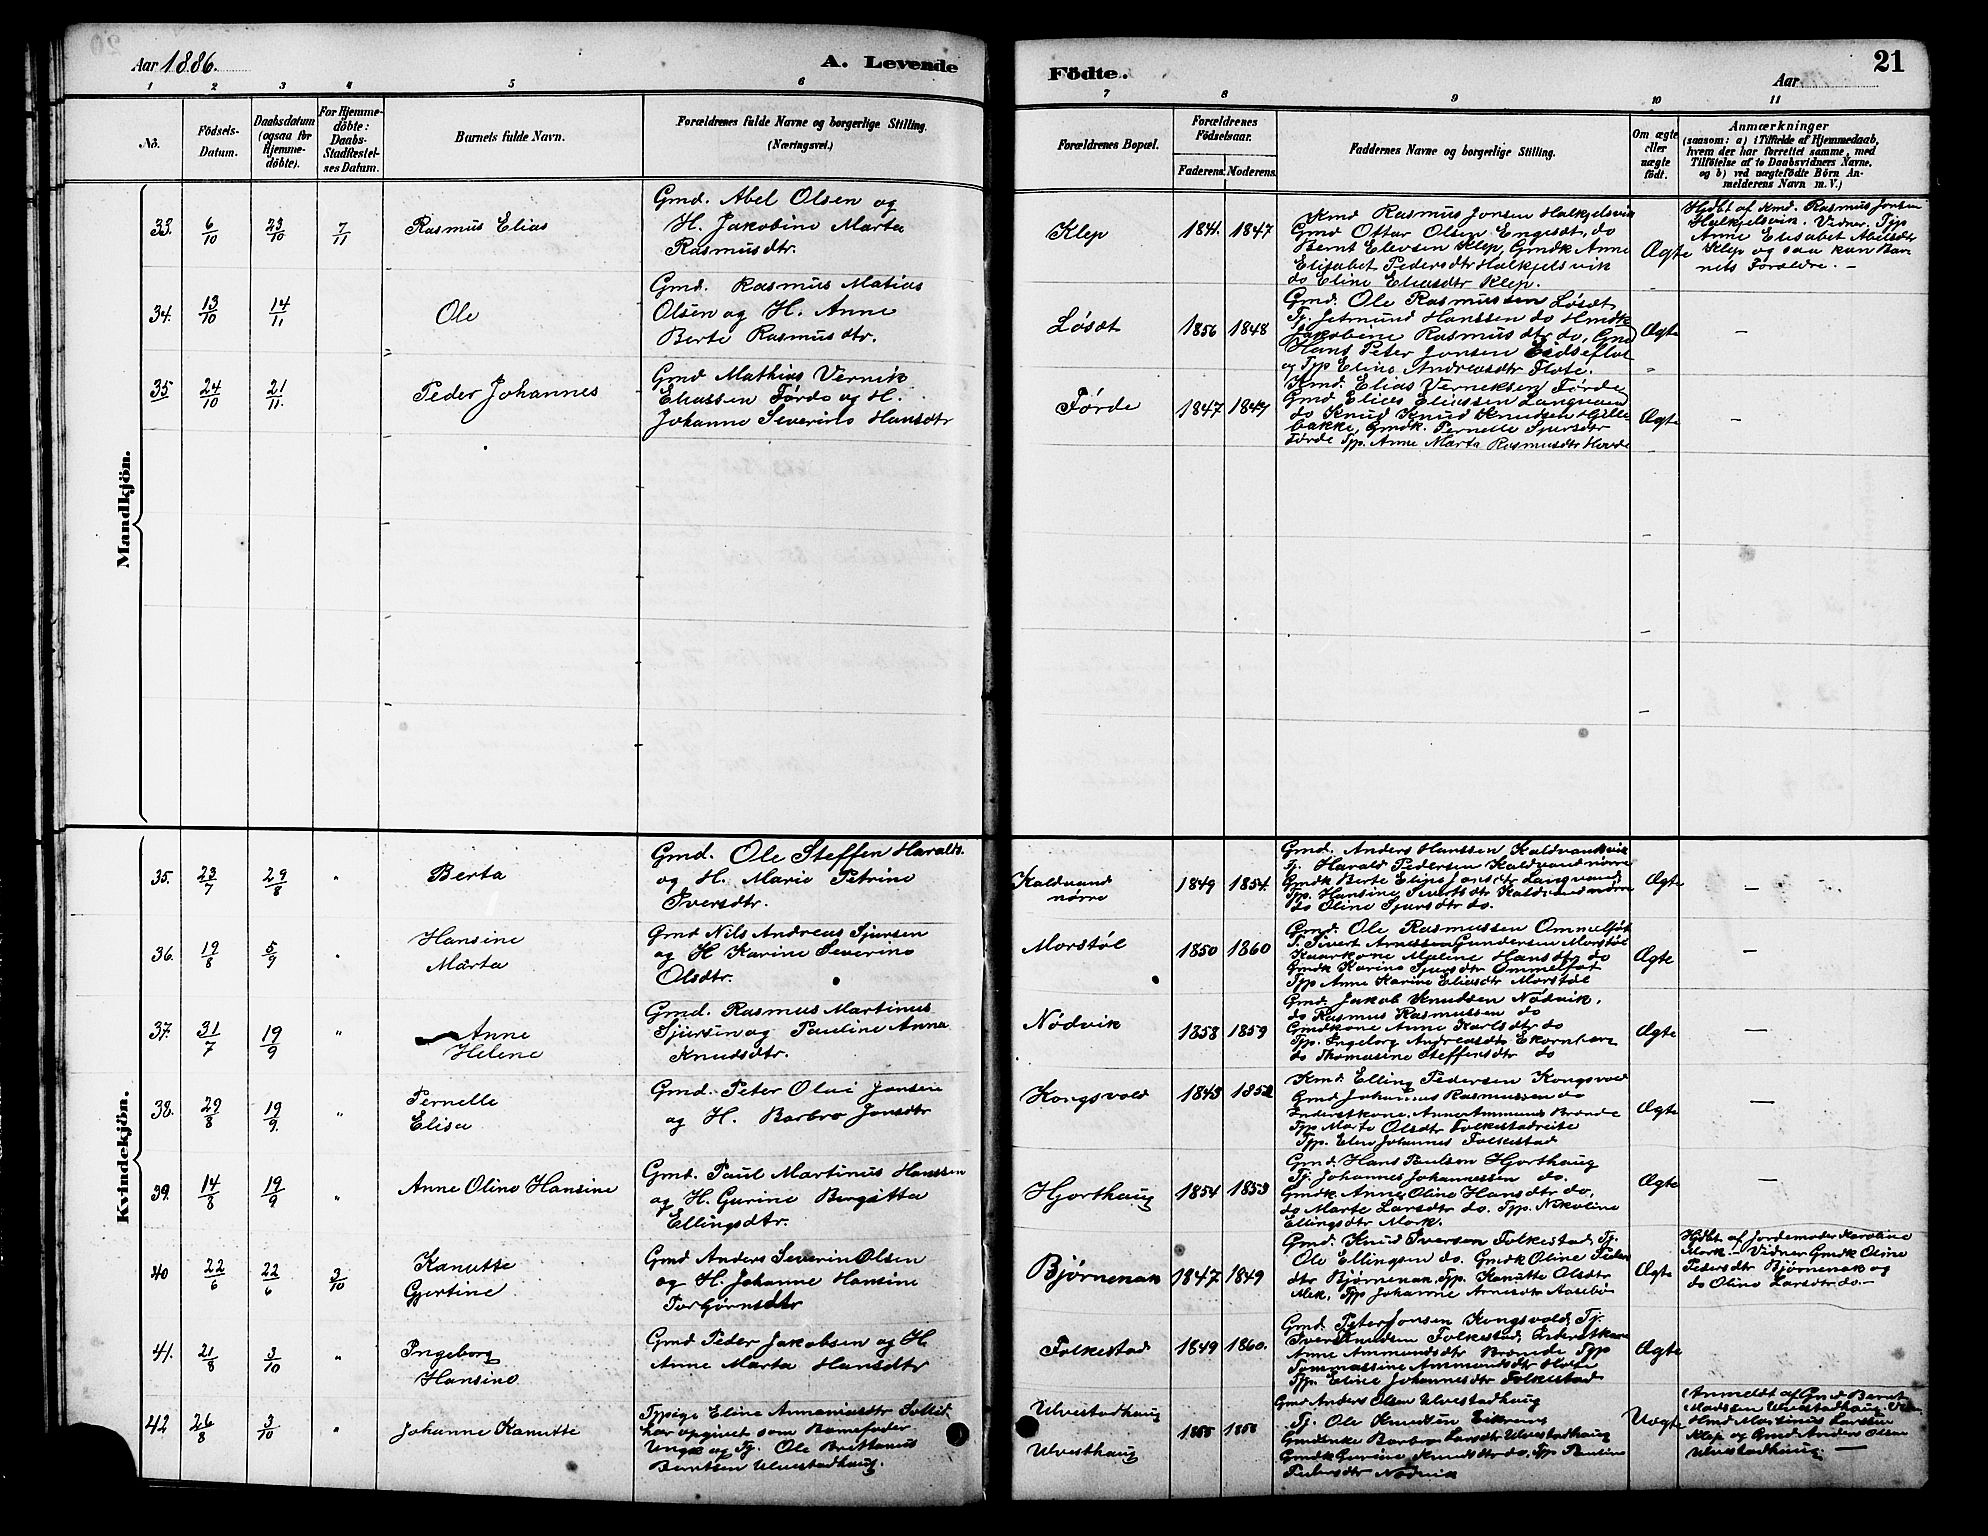 Aar 1886.
A. Levende
Födte.
Aar
21
1 2 3 4 5 6 7 8 9 10 11
No.
Födsels-
Datum.
Daabsdatum
(ogsaa for
Hjemme-
döbte).
For Hjemme-
döbte:
Daabs-
Stadfæstel-
ses Datum.
Barnets fulde Navn.
Forældrenes fulde Navne og borgerlige Stilling.
(Næringsvei.)
Forældrenes Bopæl.
Forældrenes
Födselsaar.
Faderens. Moderens.
Faddernes Navne og borgerlige Stilling.
Om ægte
eller
uægte
födt.
Anmærkninger
(saasom: a) i Tilfælde af Hjemmedaab,
hvem der har forrettet samme, med
Tilföielse af to Daabsvidners Navne,
og b) ved uægtefödte Börn An-
melderens Navn m. V.)
Mandkjön.
33. 6/10 23/10 7/11
Rasmus Elias
Gmd. Abel Olsen og
H. Jakobine Marta
Rasmusdtr.
Klep
1841. 1847
Kmd Rasmus Jonsen Halkjelsvik
Gmd Ottar Olsen Engesdt, do
Bernt Elevsen Klep, Gmdk Anne
Elisabet Pedersdtr Halkjelsvik
do Eline Eliasdtr Klep.
Ægte
Hdbt af Kmd. Rasmus Jonsen
Halkjelsvik. Vidner, Tjp
Anne Elisabet Abelsdtr
Klep og saa kun Bar-
nets Forældre. —
34. 13/10 14/11
Ole
Gmd. Rasmus Matias
Olsen og H. Anne
Berte Rasmusdtr.
Løsdt
1856 1848
Gmd. Ole Rasmussen Løsdt
Tj. Jetmund Hanssen do Hmdk
Jakobine Rasmusdtr do, Gmd
Hans Peter Jonsen Eidseflot
og Tjp Eline Andreasdtr Flote.
Ægte
—
35 24/10 21/11.
Peder Johannes
Gmd Mathias Vernik
Eliassen Førde og H.
Johanne Severine Hansdtr
Førde
1847 1849
Kmd. Elias Verniksen Førde
Gmd Elias Eliassen Langvand
do Knud Knud Knudsen Hille
bakke, Gmdk. Pernelle Sjursdtr
Førde Tjp. Anne Marta Rasmusdtr Hovde
Ægte
—
Kvindekjön.
35. 23/7 29/8 "
Berta
Gmd. Ole Steffen Haralds.
og H. Marie Petrine
Iversdtr.
Kaldvand
nørre
1849 1854.
Gmd. Anders Hanssen Kaldvandsvik
Tj. Harald Pedersen Kaldvand nørre
Gmdk Berte Elias Jonsdtr Langvand
Tjp. Hansine Sivertsdtr Kaldvand nørre
do Oline Sjursdtr do.
Ægte
—
36. 19/8 5/9 "
Hansine
Marta
Gmd Nils Andreas Sjursen
og H Karine Severine
Olsdtr.
Morstøl
1850 1860
Gmd. Ole Rasmussen Ommelfot
T. Sivert Arnessen Gundersen Morstøl
Kaarkone Maline Hansdtr do
Gmdk Karine Sjursdtr Ommelfot
Tjp Anne Karine Eliasdtr Morstøl
Ægte
—
37. 31/7 19/9 "
Anne
Helene
Gmd. Rasmus Martinus
Sjursen og Pauline Anna
Knudsdtr.
Nødvik
1858 1859
Gmd. Jakob Knudsen Nødvik,
do Rasmus Rasmussen do
Gmdkone Anne Karlsdtr do
Tjp. Ingeborg Andreasdtr Ekornhavn
do Thomasine Steffensdtr do
Ægte
—
38. 29/8 19/9. "
Pernelle
Elisa
Gmd. Peter Olai Jonsen
og H. Barbro Jonsdtr
Kongsvold
1843 1852
Kmd. Elling Pedersen Kongsvold
Gmd Johannes Rasmussen do
Inderstkone. Anne Ammunds Brande
Tjp Marte Olsdtr Folkestadreite
Tjp. Elen Johannes Folkestad
Ægte
—
39. 14/8 19/9 "
Anne Oline Hansine
Gmd. Paul Martinus Hanssen
og H. Gurine Bergitta
Ellingsdtr.
Hjorthaug
1854 1853
Gmd. Hans Paulsen Hjorthaug
Tj. Johannes Johannessen do.
Gmdk. Anne Oline Hansdtr do,
do Marte Larsdtr do. Tjp. Nikoline
Ellingsdtr Mork.
Ægte
—
40 22/6 22/6 3/10
Kanutte
Gjertine
Gmd Anders Severin Olsen
og H. Johanne Hansine
Torbjørnsdtr
Bjørnenak
1847 1849
Gmd. Knud Iversen Folkestad, Tj.
Ole Ellingsen do. Gmdk Oline Peder
dtr Bjørnenak, Tjp. Kanutte Olsdtr
Mek, Tjp Johanne Arnesdtr Aasebø
Ægte
Hjdbt. af Jordemoder Karoline
Mork. — Vidner Gmdk Oline
Pedersdtr Bjørnenak og
do Oline Larsdtr do. —
41. 21/8 3/10 "
Ingeborg
Hansine
Gmd Peder Jakobsen og H.
Anne Marta Hansdtr
Folkestad
1849 1860.
Gmd. Peter Jonsen Kongsvold, Tj.
Iver Knudsen Folkestad, Inderstkone
Anne Ammundsdtr Brande Tjp
Tommassine Ammundsdtr
Tjp. Eline Johannesdtr Folkestad
Ægte
42 26/8 3/10 "
Johanne Kanutte
Tjpige Eline Ananiasdtr
har opgivet som Barnefader
Ungk og Tj. Ole Brittanus
Berntsen Ulvestadhaug.
Ulvestadhaug
Ulvesthaug
Gmd Anders Olsen Ulvestadhaug
Tj. Ole Knudsen Eikrem
Gmdenke Barbro Larsdtr Ulvestadhaug
Gmdk Gurine Knudsdtr do. Tjp Pauline
Pedersdtr Nødvik
Uægte
Anmeldt af Gmd Bernt
Madssen Ulvestadhaug. Vidn
Hmd Martinus Larssen
Klep og Gmd Anders Olsen
Ulvestadhaug. —